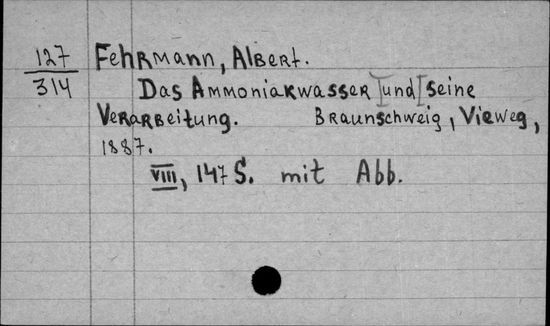 127 Fehrmann, Albert.
314 Das Ammoniakwasser und seine
Verarbeitung. Braunschweig, Vieweg,
1887.
VIII, 147 S. mit Abb.